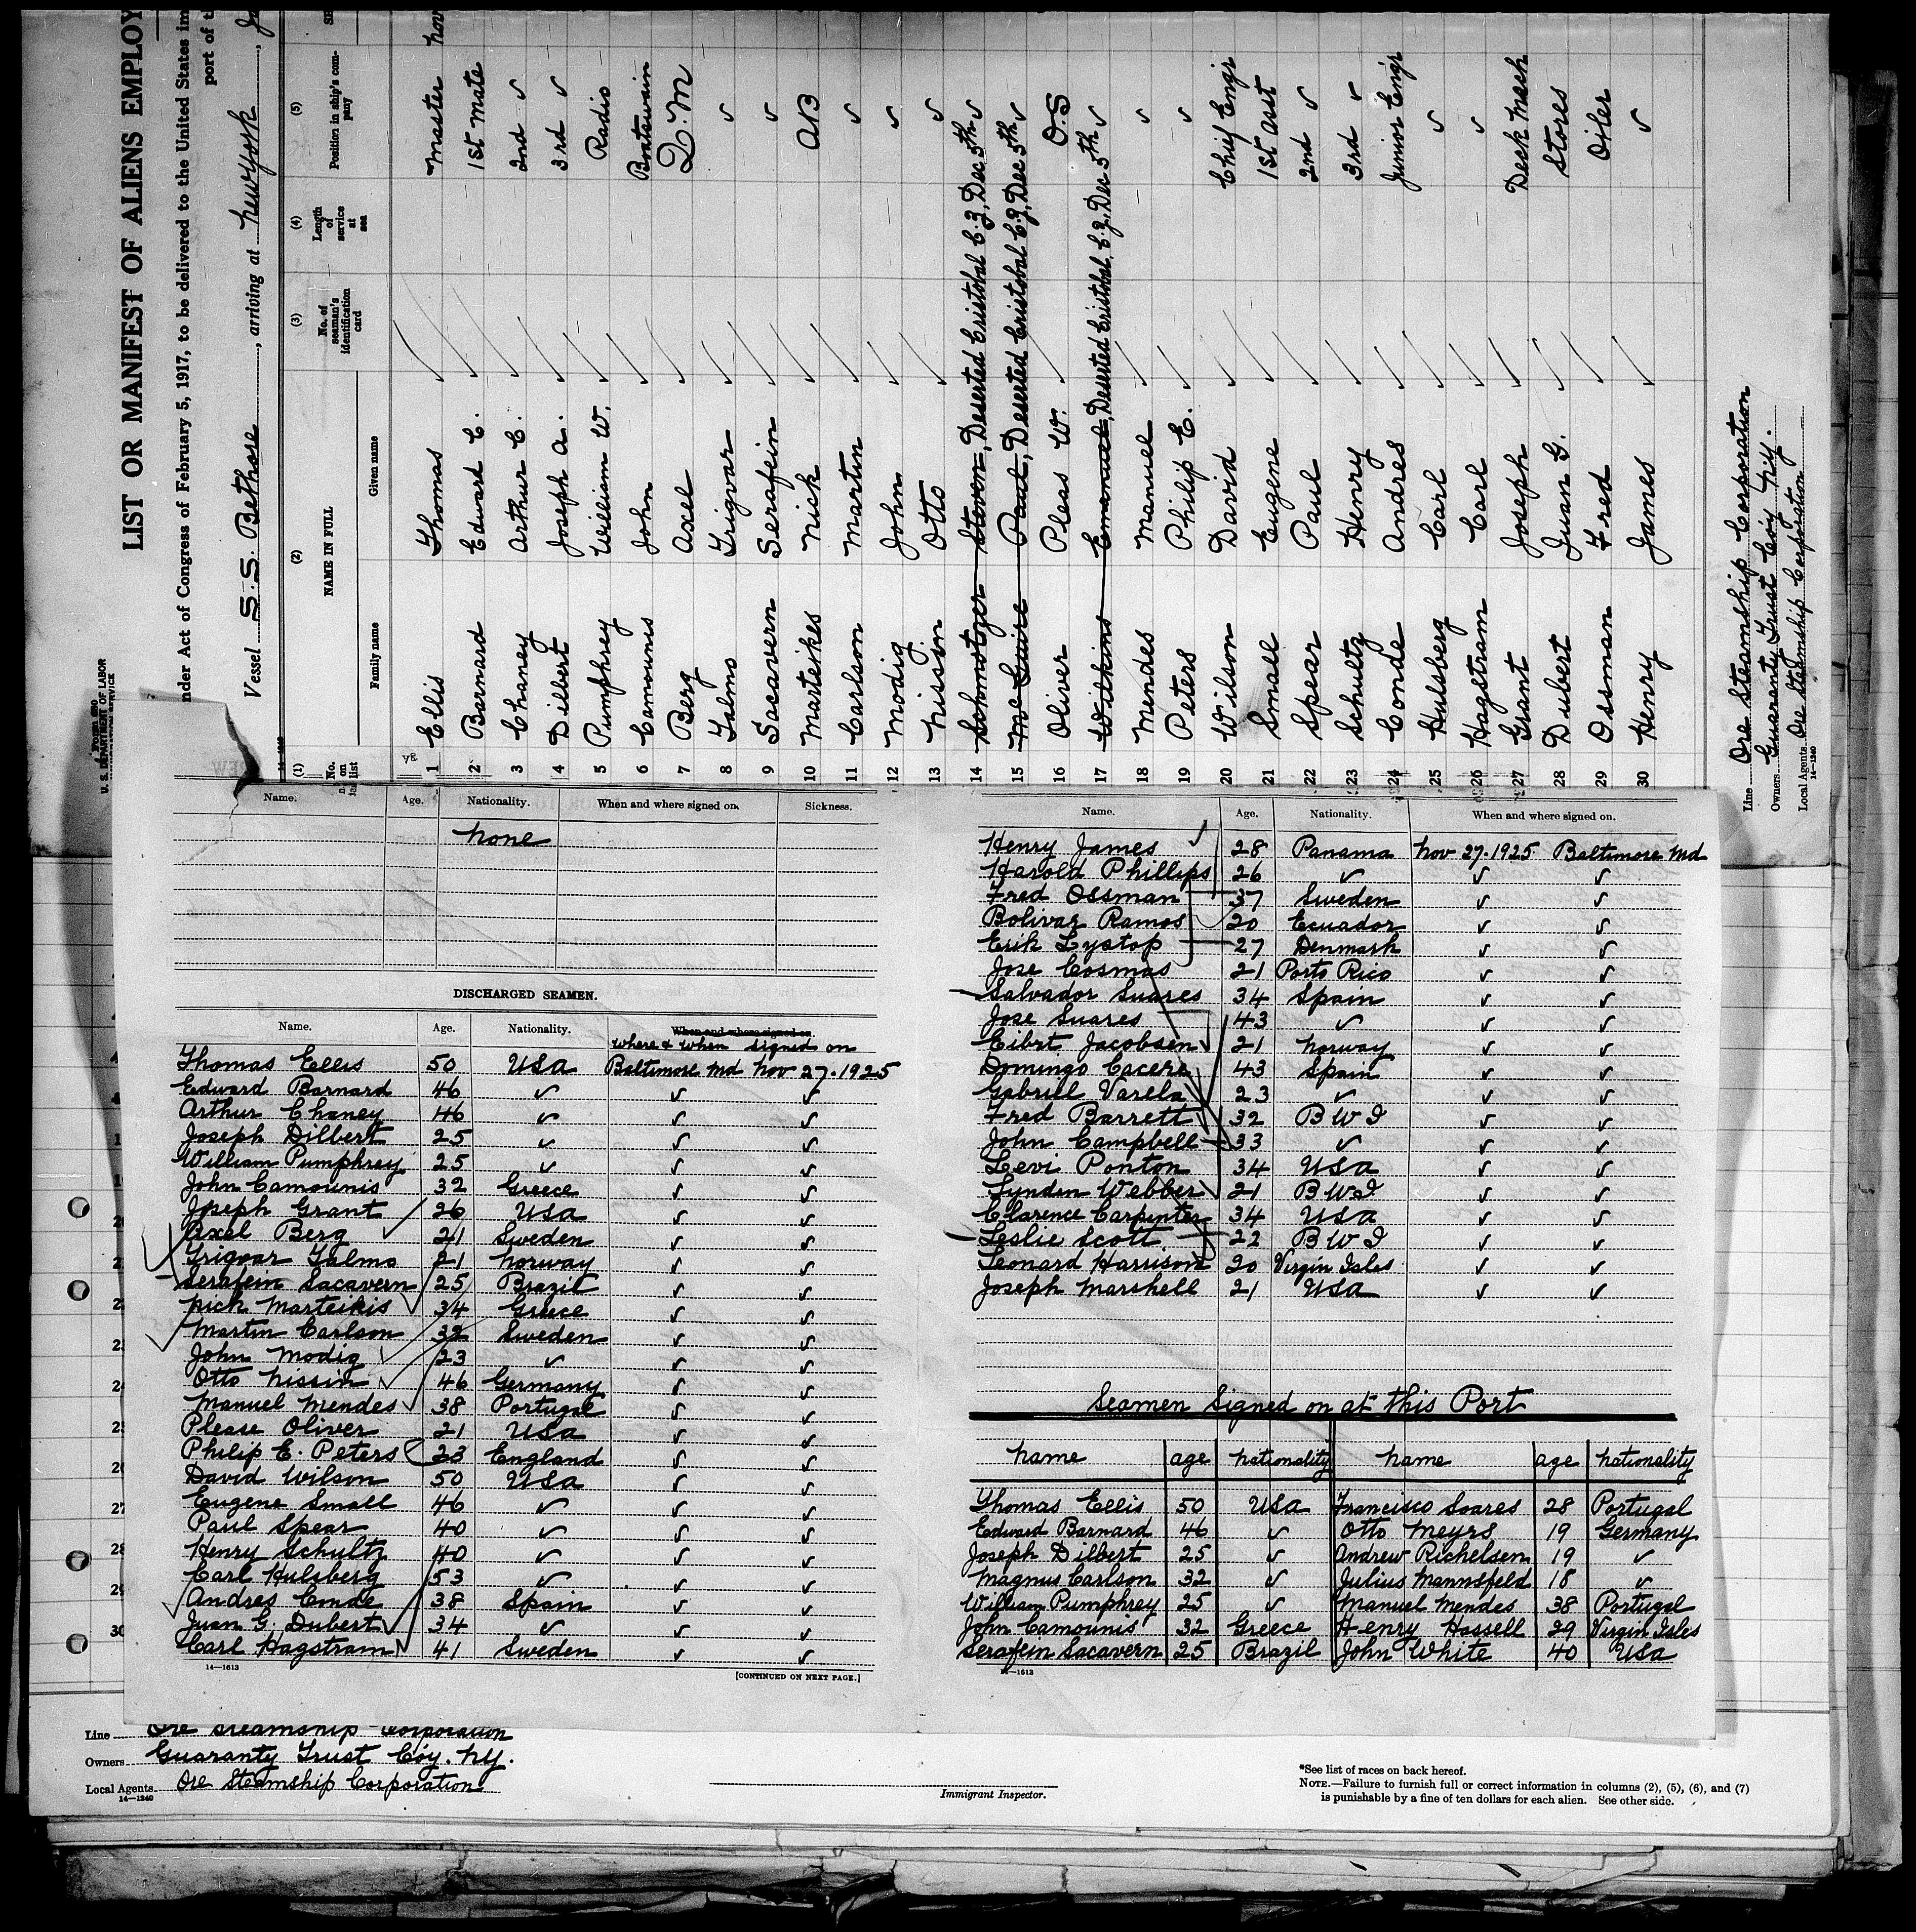 LIST OR MANIFEST OF ALIENS EMPLOY
nder Act of Congress of February 5, 1917, to be delivered to the United States im
port of t
U. S. DEPARTMENT OF LABOR
Vessel S.S. Bethore, arriving at New York
(1) (2) (3) (4) (5)
No. on list NAME IN FULL No. of seaman's identification card Length of service at sea Position in ship's company
Family name Given name
1 Ellis Thomas Master Nov
2 Barnard Edward C. 1st Mate
3 Chaney Arthur C. 2nd ✓
4 Dilbert Joseph A. 3rd ✓
5 Pumphrey William W. Radio
6 Camounis John Boatswain
7 Berg Axel Q.M
8 Talmo Trigvar ✓
9 Sacavern Serafein ✓
10 Marteikes Nick AB
11 Carlson Martin ✓
12 Modig John ✓
13 Nissin Otto ✓
14 Schmotzer Steven, Deserted Cristobal C.Z, Dec 5th ✓
15 Mc Guire Paul, Deserted Cristobal C.Z, Dec 5th ✓
16 Oliver Pleas W. O.S
17 Wilkins Emanuel, Deserted Cristobal, C.Z, Dec 5th ✓
18 Mendes Manuel ✓
19 Peters Philip E. ✓
20 Wilson David Chief Engr
21 Small Eugene 1st Asst
22 Spear Paul 2nd ✓
23 Schultz Henry 3rd ✓
24 Conde Andres Junior Engr
25 Hulsberg Carl ✓
26 Hagstram Carl ✓
27 Grant Joseph Deck Mech
28 Dubert Juan G. Stores
29 Ossman Fred Oiler
30 Henry James ✓
Line Ore Steamship Corporation
Owners Guaranty Trust Coy N.Y.
Local Agents Ore Steamship Corporation
14—1240
Name. Age. Nationality. When and where signed on. Sickness.
None
DISCHARGED SEAMEN.
Name. Age. Nationality. When and where signed on
where & when signed on
Thomas Ellis 50 USA Baltimore Md Nov 27-1925
Edward Barnard 46 ✓ ✓ ✓
Arthur Chaney 46 ✓ ✓ ✓
Joseph Dilbert 25 ✓ ✓ ✓
William Pumphrey 25 ✓ ✓ ✓
John Camounis 32 Greece ✓ ✓
Joseph Grant 26 USA ✓ ✓
Axel Berg 21 Sweden ✓ ✓
Trigvar Talmo 21 Norway ✓ ✓
Serafein Sacavern 25 Brazil ✓ ✓
Nick Marteikis 34 Greece ✓ ✓
Martin Carlson 32 Sweden ✓ ✓
John Modig 23 ✓ ✓ ✓
Otto Nissin 46 Germany ✓ ✓
Manuel Mendes 38 Portugal ✓ ✓
Please Oliver 21 USA ✓ ✓
Philip E. Peters 23 England ✓ ✓
David Wilson 50 USA ✓ ✓
Eugene Small 46 ✓ ✓ ✓
Paul Spear 40 ✓ ✓ ✓
Henry Schultz 40 ✓ ✓ ✓
Carl Hulsberg 53 ✓ ✓ ✓
Andres Conde 38 Spain ✓ ✓
Juan G. Dubert 34 ✓ ✓ ✓
Carl Hagstram 41 Sweden ✓ ✓
14—1613
[CONTINUED ON NEXT PAGE.]
Name. Age. Nationality. When and where signed on.
Henry James 28 Panama Nov 27-1925 Baltimore Md
Harold Phillips 26 ✓ ✓ ✓
Fred Ossman 37 Sweden ✓ ✓
Bolivar Ramos 20 Ecuador ✓ ✓
Erik Lystop 27 Denmark ✓ ✓
Jose Cosmas 21 Porto Rico ✓ ✓
Salvador Suares 34 Spain ✓ ✓
Jose Suares 43 ✓ ✓ ✓
Eibrt Jacobsen 21 Norway ✓ ✓
Domingo Cacera 43 Spain ✓ ✓
Gabriell Varela 23 ✓ ✓ ✓
Fred Barrett 32 B W I ✓ ✓
John Campbell 33 ✓ ✓ ✓
Levi Ponton 34 USA ✓ ✓
Lynden Webber 21 B W I ✓ ✓
Clarence Carpenter 34 USA ✓ ✓
Leslie Scott 22 B W I ✓ ✓
Leonard Harrison 20 Virgin Isles ✓ ✓
Joseph Marshell 21 USA ✓ ✓
Seamen Signed on at this Port
Name age Nationality Name age Nationality
Thomas Ellis 50 USA Francisco Soares 28 Portugal
Edward Barnard 46 ✓ Otto Meyrs 19 Germany
Joseph Dilbert 25 ✓ Andrew Richelsen 19 ✓
Magnus Carlson 32 ✓ Julius Mannsfeld 18 ✓
William Pumphrey 25 ✓ Manuel Mendes 38 Portugal
John Camounis 32 Greece Henry Hassell 29 Virgin Isles
Serafein Sacavern 25 Brazil John White 40 USA
14—1613
Line Ore Steamship Corporation
Owners Guaranty Trust Coy. NY.
Local Agents Ore Steamship Corporation
14—1240
Immigrant Inspector.
*See list of races on back hereof.
NOTE.—Failure to furnish full or correct information in columns (2), (5), (6), and (7)
is punishable by a fine of ten dollars for each alien. See other side.